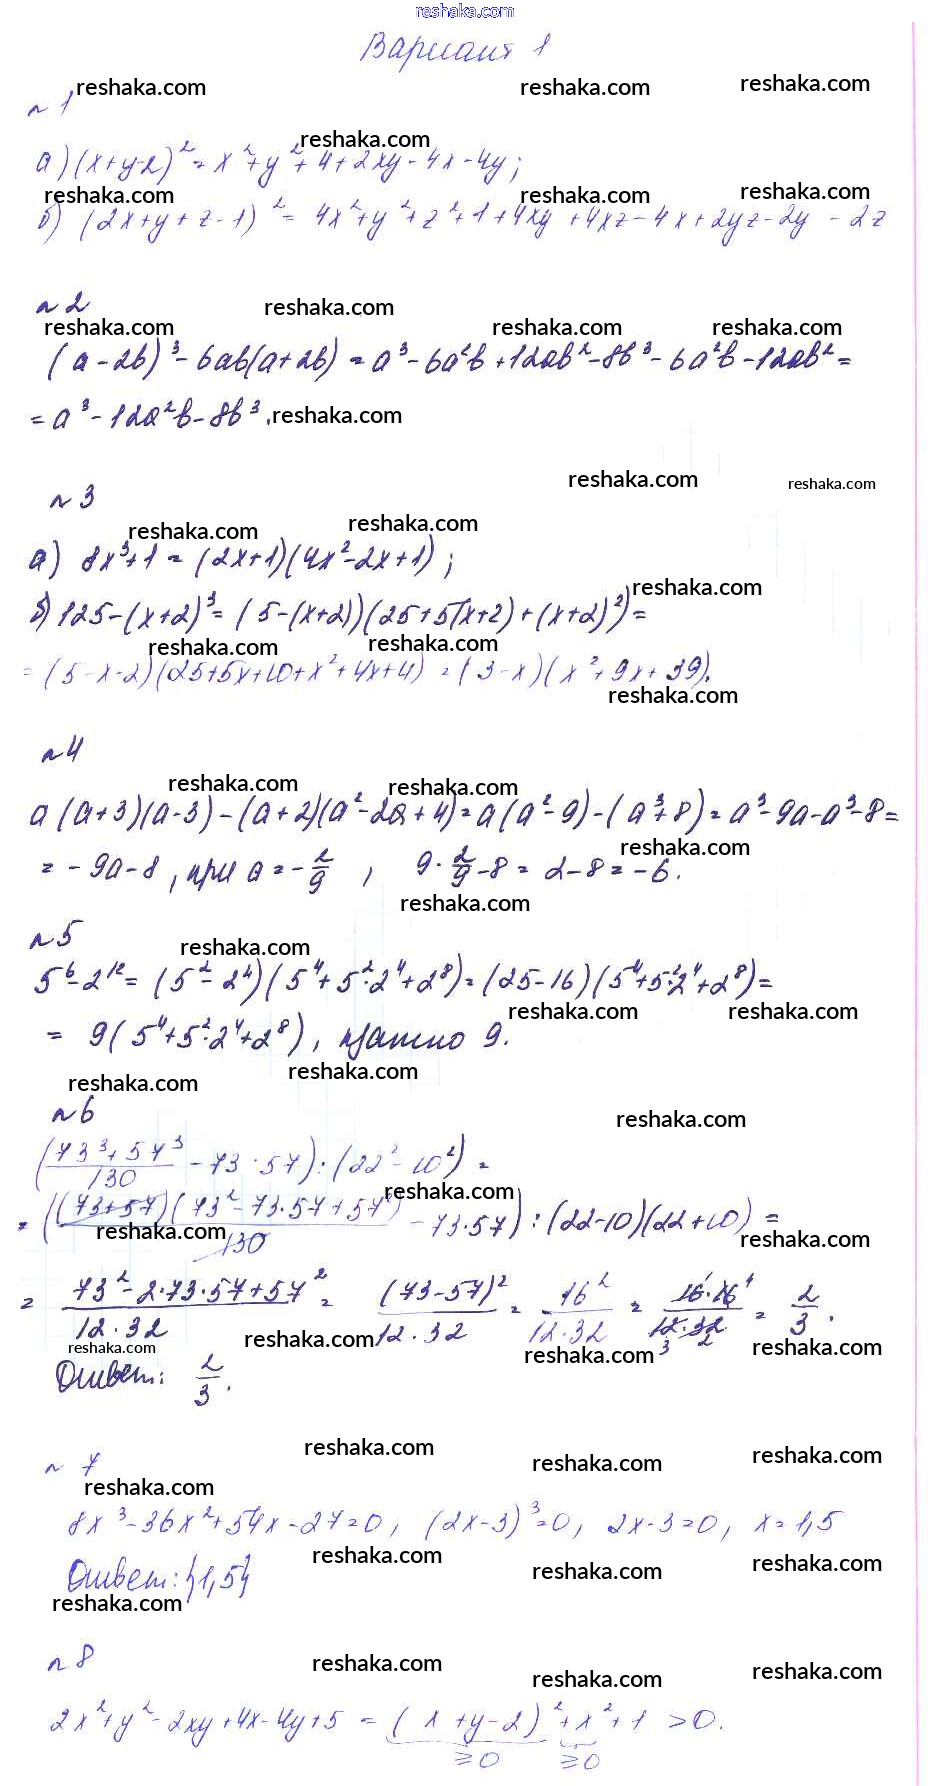 reshaka.com
Вариант 1
reshaka.com reshaka.com reshaka.com
№ 1
reshaka.com
а) (x+y-2)² = x²+y²+4+2xy-4x-4y;
reshaka.com reshaka.com reshaka.com
б) (2x+y+z-1)² = 4x²+y²+z²+1+4xy+4xz-4x+2yz-2y-2z
№ 2
reshaka.com
reshaka.com reshaka.com reshaka.com
(a-2b)³-6ab(a+2b) = a³-6a²b+12ab²-8b³-6a²b-12ab² =
= a³-12a²b-8b³. reshaka.com
reshaka.com reshaka.com
№ 3
reshaka.com reshaka.com
а) 8x³+1 = (2x+1)(4x²-2x+1);
reshaka.com
б) 125-(x+2)³ = (5-(x+2))(25+5(x+2)+(x+2)²) =
reshaka.com reshaka.com
= (5-x-2)(25+5x+10+x²+4x+4) = (3-x)(x²+9x+39).
reshaka.com
№ 4
reshaka.com reshaka.com
a(a+3)(a-3)-(a+2)(a²-2a+4) = a(a²-9)-(a³+8) = a³-9a-a³-8 =
reshaka.com
= -9a-8, при a = -2/9, 9·2/9-8 = 2-8 = -6.
reshaka.com
№ 5
reshaka.com
5⁶-2¹² = (5²-2⁴)(5⁴+5²·2⁴+2⁸) = (25-16)(5⁴+5²·2⁴+2⁸) =
reshaka.com reshaka.com
= 9(5⁴+5²·2⁴+2⁸), кратно 9.
reshaka.com reshaka.com
№ 6
reshaka.com
((73³+57³)/130 - 73·57) : (22²-10²) =
reshaka.com
= ((73+57)(73²-73·57+57²)/130 - 73·57) : (22-10)(22+10) =
reshaka.com reshaka.com
= (73²-2·73·57+57²)/(12·32) = (73-57)²/(12·32) = 16²/(12·32) = (16·16)/(12·32) = 2/3.
reshaka.com reshaka.com reshaka.com reshaka.com
Ответ: 2/3.
reshaka.com reshaka.com reshaka.com
№ 7
reshaka.com
8x³-36x²+54x-27=0, (2x-3)³=0, 2x-3=0, x=1,5
reshaka.com reshaka.com reshaka.com
Ответ: {1,5}
reshaka.com
№ 8
reshaka.com reshaka.com reshaka.com
2x²+y²-2xy+4x-4y+5 = (x+y-2)²+x²+1 > 0.
≥0 ≥0